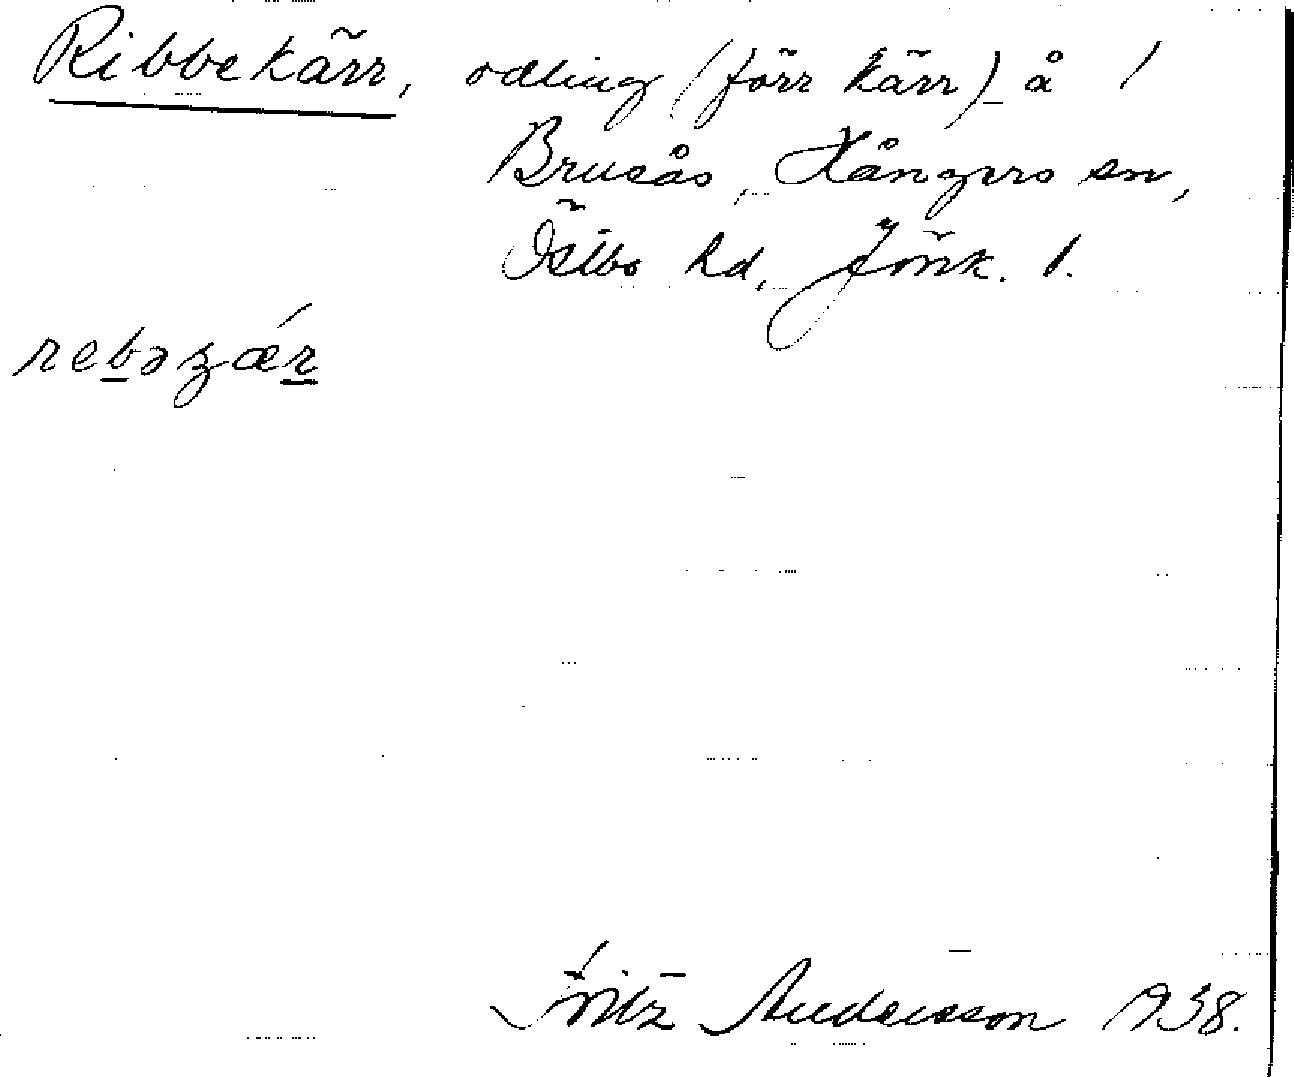 Ribbekärr, odling (förr kärr) å /
Brusås, Kångers sn,
Östbo hd, Jönk. l.
rebəʒæ´r
Fritz Andersson 1938.